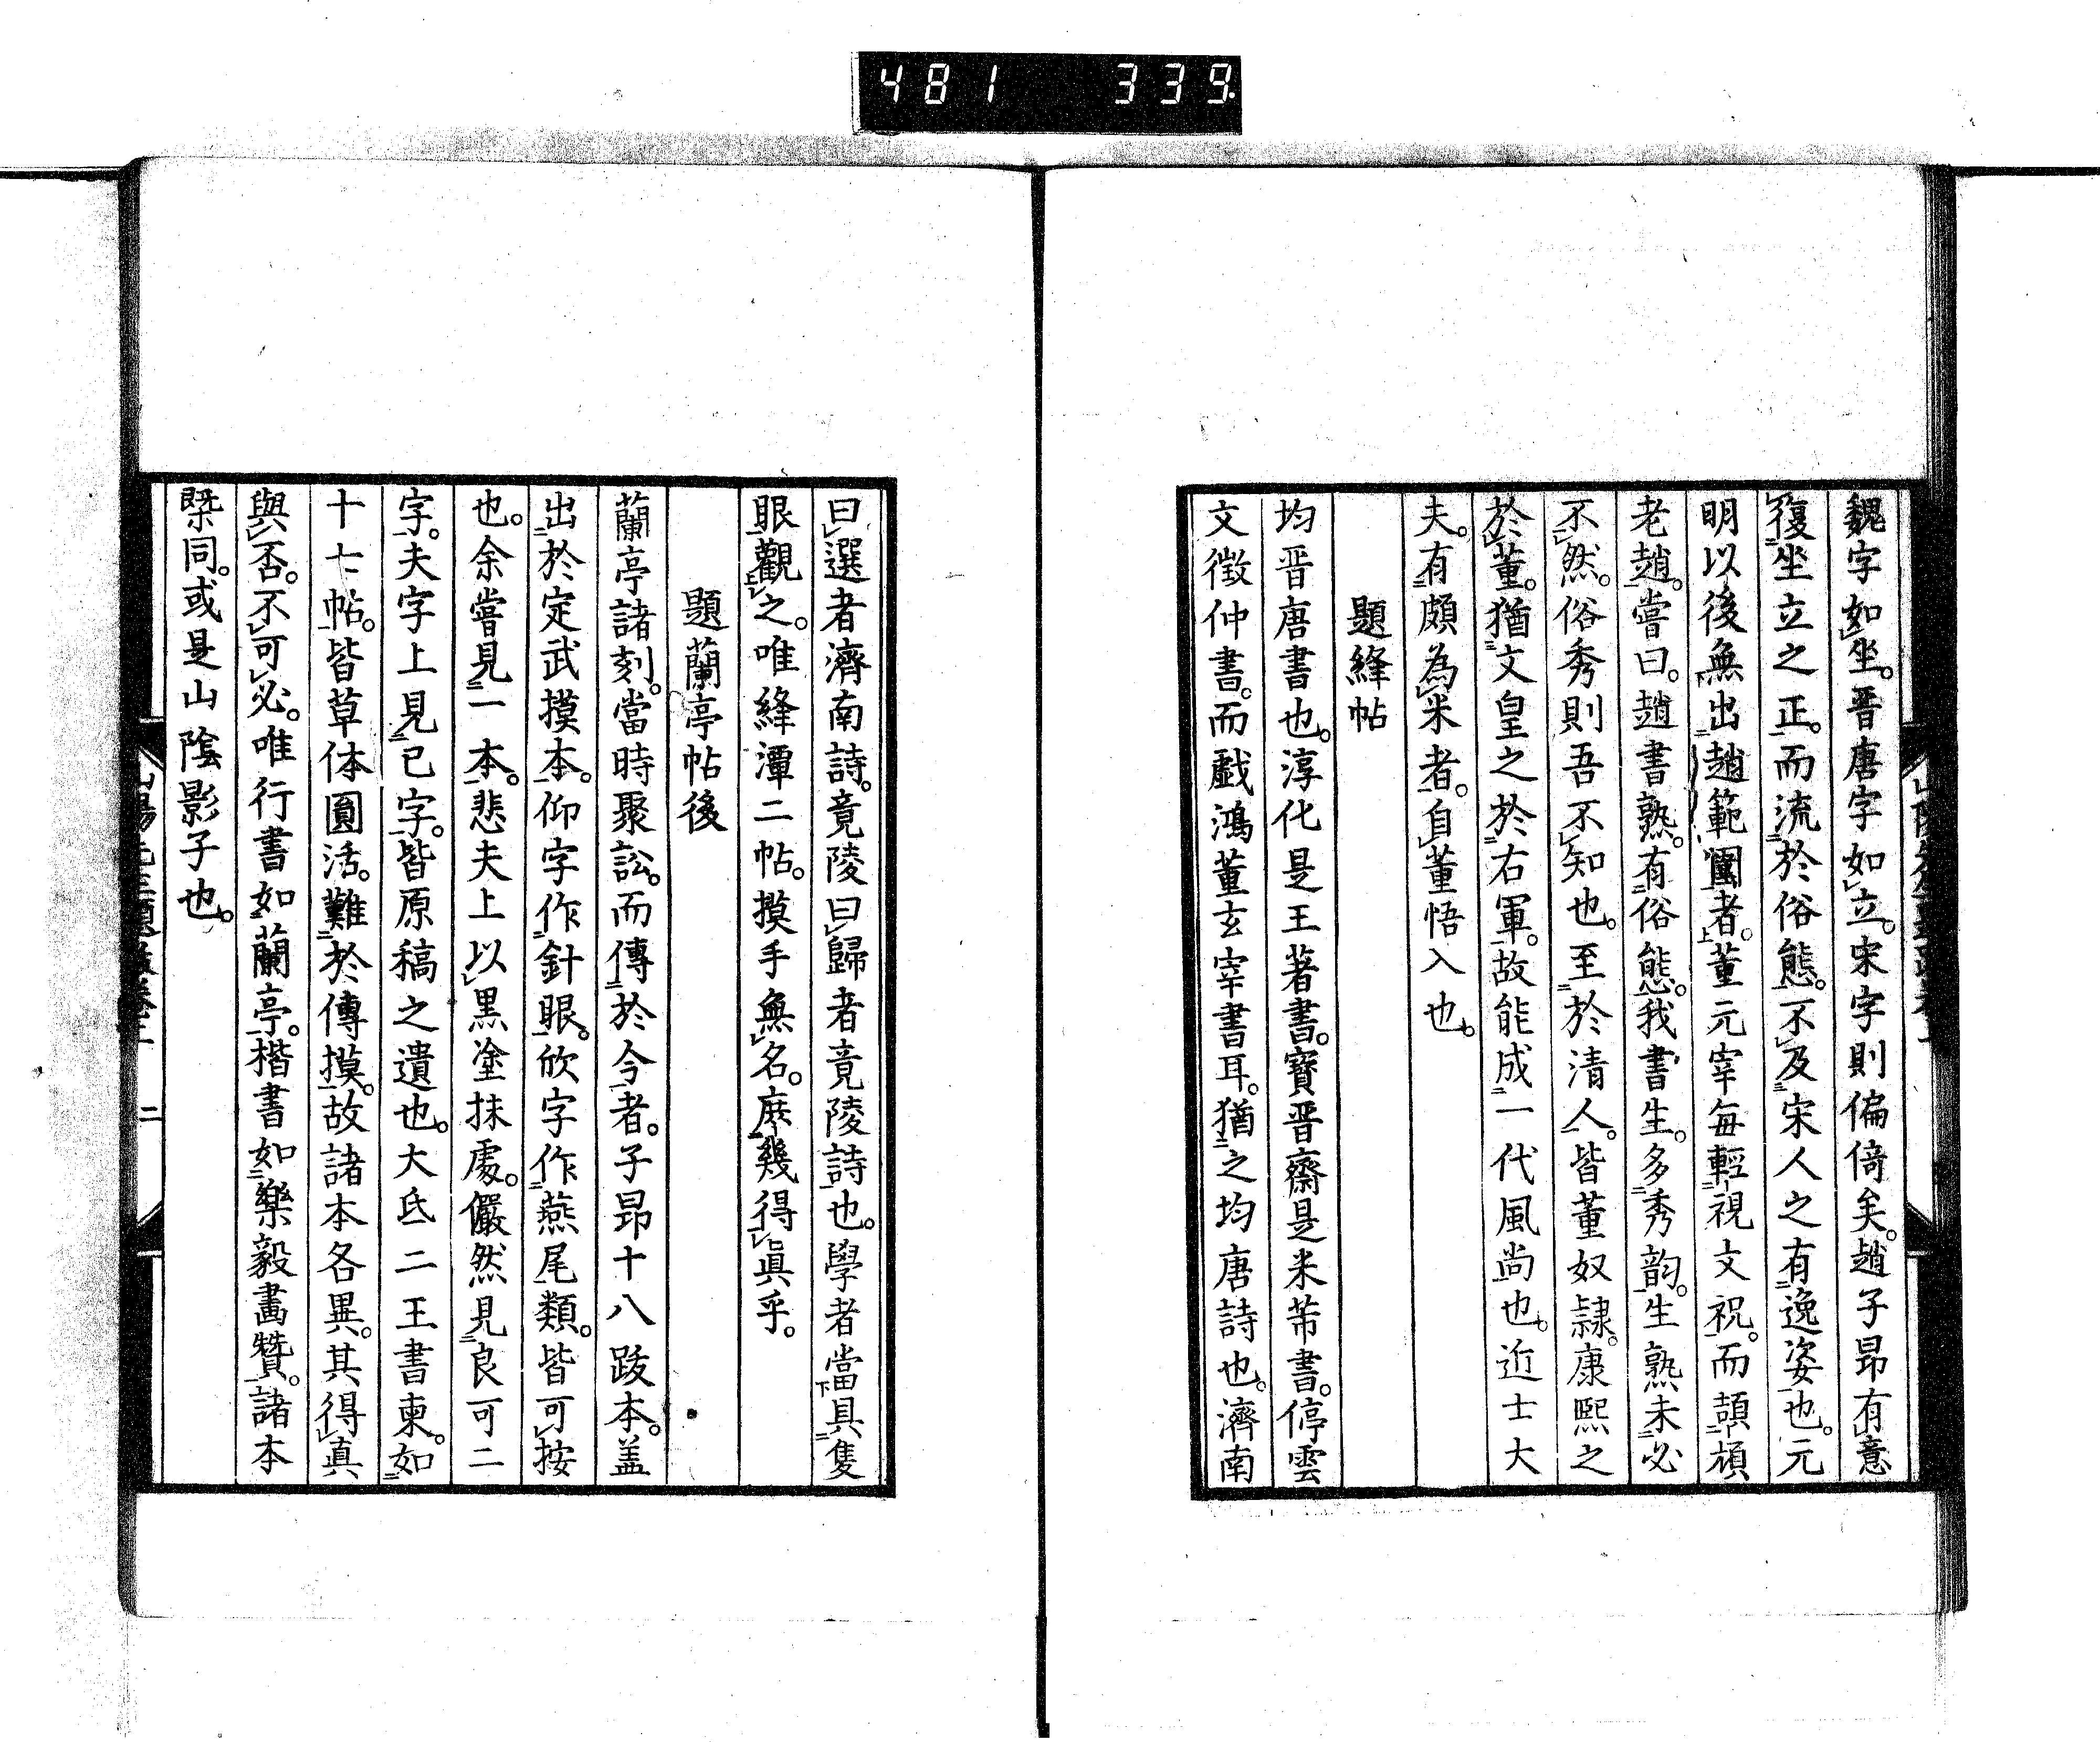 481 339
魏字如坐。晋唐字如立。宋字則偏倚矣。趙子昂有意
復坐立之正。而流於俗態。不及宋人之有逸姿也。元
明以後無出趙範圍者。董元宰每輕視文祝。而頡頏
老趙。嘗曰。趙書熟。有俗態。我書生。多秀韵。生熟未必
不然。俗秀則吾不知也。至於清人。皆董奴隷。康熙之
於董。猶文皇之於右軍。故能成一代風尚也。近士大
夫。有頗為米者。自董悟入也。
題絳帖
均晋唐書也。淳化是王著書。寶晋齋是米芾書。停雲
文徵仲書。而戲鴻董玄宰書耳。猶之均唐詩也。濟南
曰選者濟南詩。竟陵曰歸者竟陵詩也。學者當具隻
眼觀之。唯絳潭二帖。摸手無名。庶幾得眞乎。
題蘭亭帖後
蘭亭諸刻。當時聚訟。而傳於今者。子昂十八跋本。盖
出於定武摸本。仰字作針眼。欣字作燕尾類。皆可按
也。余嘗見一本。悲夫上以黒塗抹處。儼然見良可二
字。夫字上見已字。皆原稿之遺也。大氐二王書柬。如
十七帖。皆草体圓活。難於傳摸。故諸本各異。其得真
與否。不可必。唯行書如蘭亭。楷書如樂毅畵贊。諸本
槩同。或是山陰影子也。
二